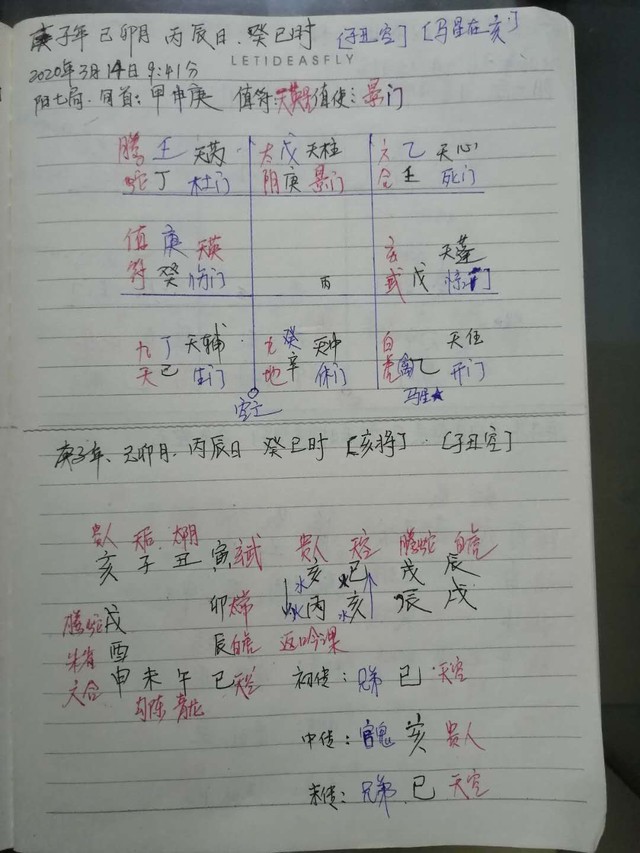 庚子年 己卯月 丙辰日. 癸巳时 [子丑空] [马星在亥]
2020年3月14日9:41分 LETIDEASFLY
阳七局. 旬首: 甲申庚 值符: 天英 值使: 景门
腾 壬 天芮 太 戊 天柱 六 乙 天心
蛇 丁 杜门 阴 庚 景门 合 壬 死门
值 庚 天英 玄 天蓬
符 癸 伤门 丙 武 戊 惊门
九 丁 天辅 九 癸 天冲 白 天任
天 己 生门 地 辛 休门 虎 乙 开门
空亡 马星★
庚子年、己卯月. 丙辰日 癸巳时 [亥将]. [子丑空]
贵人 天后 太阴
亥 子 丑 寅 玄武 贵人 天空 腾蛇 白虎
水 亥 巳 戌 辰
卯 太常 丙 水 亥 辰 戌
腾蛇 戌
朱雀 酉 辰 白虎 返吟课
六合 申 未 午 巳 天空 初传: 兄弟 巳 天空
勾陈 青龙
中传: 官鬼 亥 贵人
末传: 兄弟 巳 天空